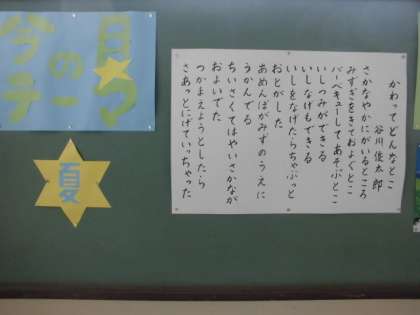 今月
の
テーマ
夏
かわってどんなとこ
谷川俊太郎
さかなやかにがいるところ
みずぎをきておよぐとこ
バーベキューしてあそぶとこ
いしつみができる
いしなげもできる
いしをなげたらちゃぷっと
おとがした
あめんぼがみずのうえに
うかんでる
ちいさくてはやいさかなが
およいでた
つかまえようとしたら
さあっとにげていっちゃった